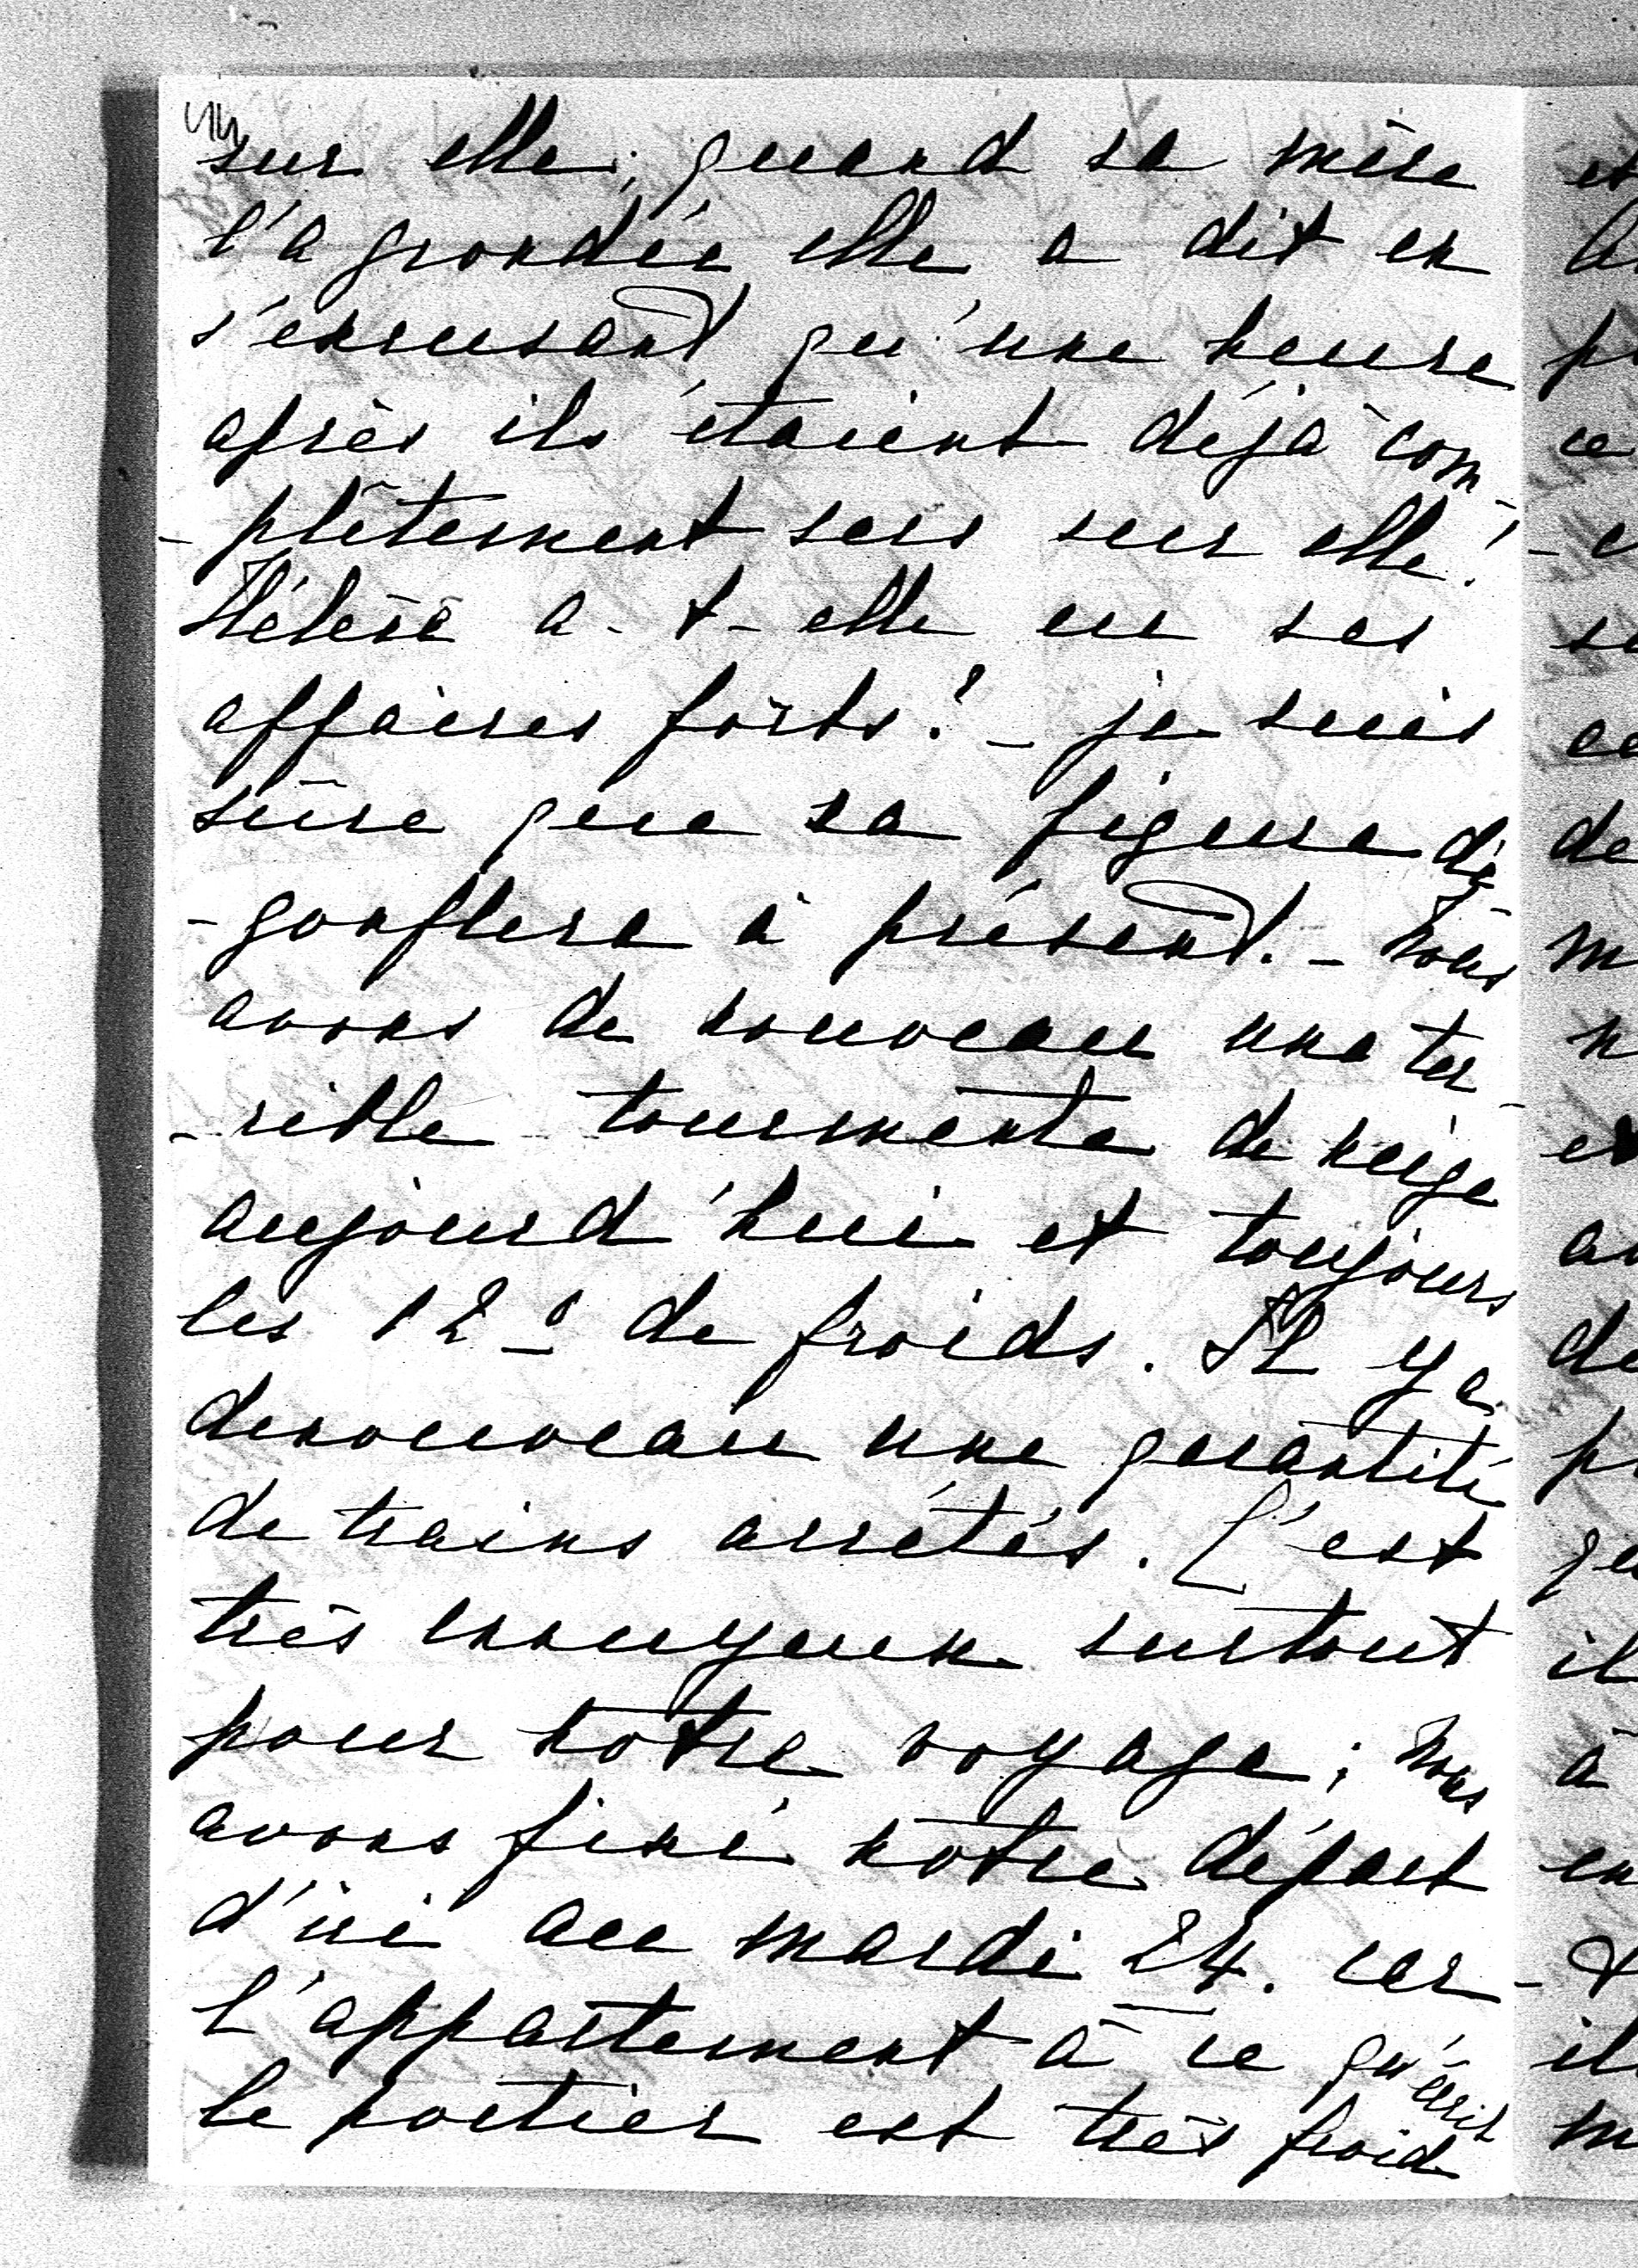 sur elle; quand sa mère
l'a grondée elle a dit en
s'excusant qu'une heure
après ils étaient déjà com-
-plètement secs sur elle!
Hélène a-t-elle eu ses
affaires forts? - je suis
sûre que sa figure dé
-gonflera à présent. - Nous
avons de nouveau une ter-
-rible tourmente de neige
aujourd'hui et toujours
les 12° de froids. Il y a
denouveau une quantité
de trains arrêtés. C'est
très ennuyeux surtout
pour notre voyage; nous
avons fixé notre départ
d'ici au mardi 24. car
l'appartement à ce qu'écrit
le portier est très froid